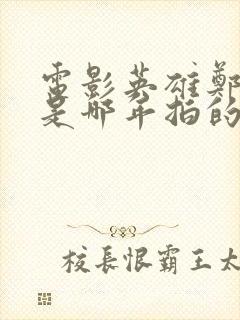 電影英雄鄭
是那年拍的
校長恨霸王太